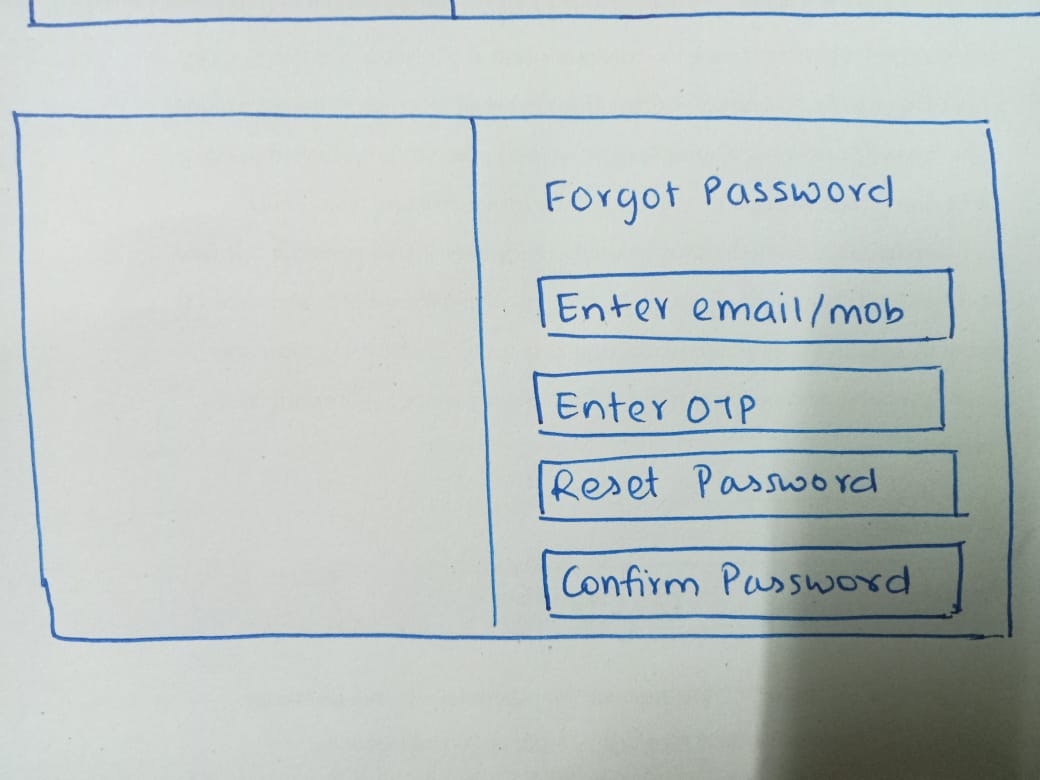 Forgot Password
Enter email/mob
Enter OTP
Reset Password
Confirm Password